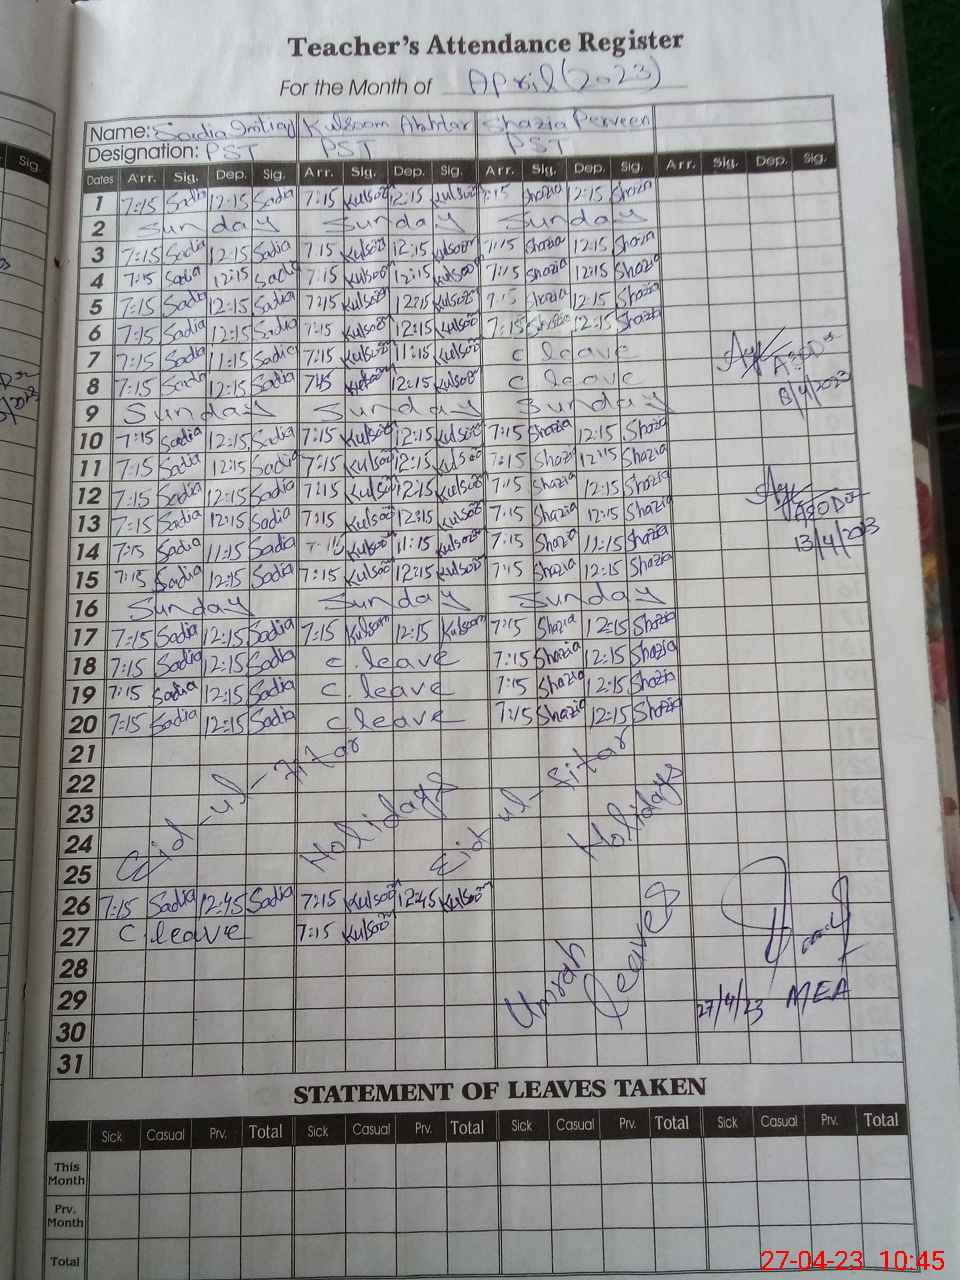 Teacher's Attendance Register
For the Month of April (2023)
Name: Sadia Imtiaz Kulsoom Akhtar Shazia Perveen
Designation: PST PST PST
Dates Arr. Sig. Dep. Sig. Arr. Sig. Dep. Sig. Arr. Sig. Dep. Sig. Arr. Sig. Dep. Sig.
1 7:15 Sadia 12:15 Sadia 7:15 Kulsoom 12:15 Kulsoom 7:15 Shazia 12:15 Shazia
2 Sunday Sunday Sunday
3 7:15 Sadia 12:15 Sadia 7:15 Kulsoom 12:15 Kulsoom 7:15 Shazia 12:15 Shazia
4 7:15 Sadia 12:15 Sadia 7:15 Kulsoom 12:15 Kulsoom 7:15 Shazia 12:15 Shazia
5 7:15 Sadia 12:15 Sadia 7:15 Kulsoom 12:15 Kulsoom 7:15 Shazia 12:15 Shazia
6 7:15 Sadia 12:15 Sadia 7:15 Kulsoom 12:15 Kulsoom 7:15 Shazia 12:15 Shazia
7 7:15 Sadia 11:15 Sadia 7:15 Kulsoom 11:15 Kulsoom C leave
8 7:15 Sadia 12:15 Sadia Kulsoom 12:15 Kulsoom C leave 8/4/2023
9 Sunday Sunday Sunday
10 7:15 Sadia 12:15 Sadia 7:15 Kulsoom 12:15 Kulsoom 7:15 Shazia 12:15 Shazia
11 7:15 Sadia 12:15 Sadia 7:15 Kulsoom 12:15 Kulsoom 7:15 Shazia 12:15 Shazia
12 7:15 Sadia 12:15 Sadia 7:15 Kulsoom 12:15 Kulsoom 7:15 Shazia 12:15 Shazia
13 7:15 Sadia 12:15 Sadia 7:15 Kulsoom 12:15 Kulsoom 7:15 Shazia 12:15 Shazia
14 7:15 Sadia 11:15 Sadia 7:15 Kulsoom 11:15 Kulsoom 7:15 Shazia 11:15 Shazia 13/4/2023
15 7:15 Sadia 12:15 Sadia 7:15 Kulsoom 12:15 Kulsoom 7:15 Shazia 12:15 Shazia
16 Sunday Sunday Sunday
17 7:15 Sadia 12:15 Sadia 7:15 Kulsoom 12:15 Kulsoom 7:15 Shazia 12:15 Shazia
18 7:15 Sadia 12:15 Sadia C. leave 7:15 Shazia 12:15 Shazia
19 7:15 Sadia 12:15 Sadia C. leave 7:15 Shazia 12:15 Shazia
20 7:15 Sadia 12:15 Sadia C leave 7:15 Shazia 12:15 Shazia
21
22
23
24
25
Eid-ul-Fitar Holidays Eid ul-fitar Holidays
26 7:15 Sadia 12:45 Sadia 7:15 Kulsoom 12:45 Kulsoom
27 C leave 7:15 Kulsoom
28
29
30
31
Umrah Leaves
27/4/23 MEA
STATEMENT OF LEAVES TAKEN
Sick Casual Prv. Total Sick Casual Prv. Total Sick Casual Prv. Total Sick Casual Prv. Total
This Month
Prv. Month
Total
27-04-23 10:45